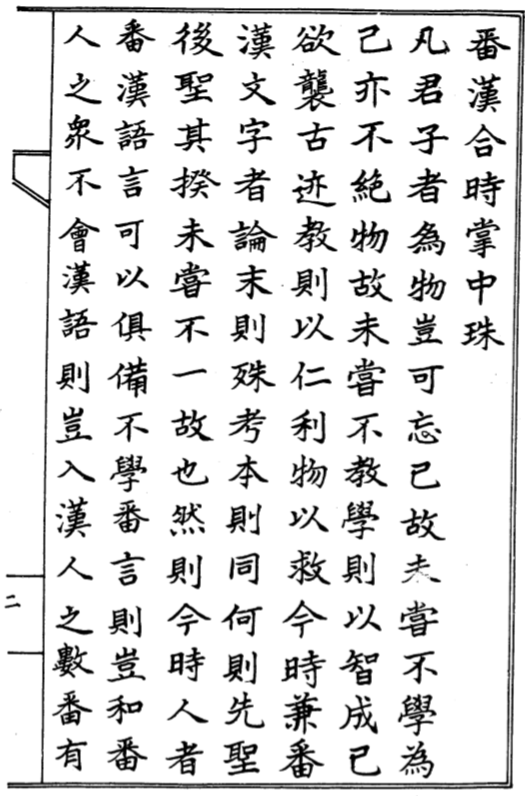 番漢合時掌中珠
凡君子者為物豈可忘己故未嘗不學為
己亦不絶物故未嘗不教學則以智成己
欲襲古迹教則以仁利物以救今時兼番
漢文字者論末則殊考本則同何則先聖
後聖其揆未嘗不一故也然則今時人者
番漢語言可以俱備不學番言則豈和番
人之衆不會漢語則豈入漢人之數番有
二